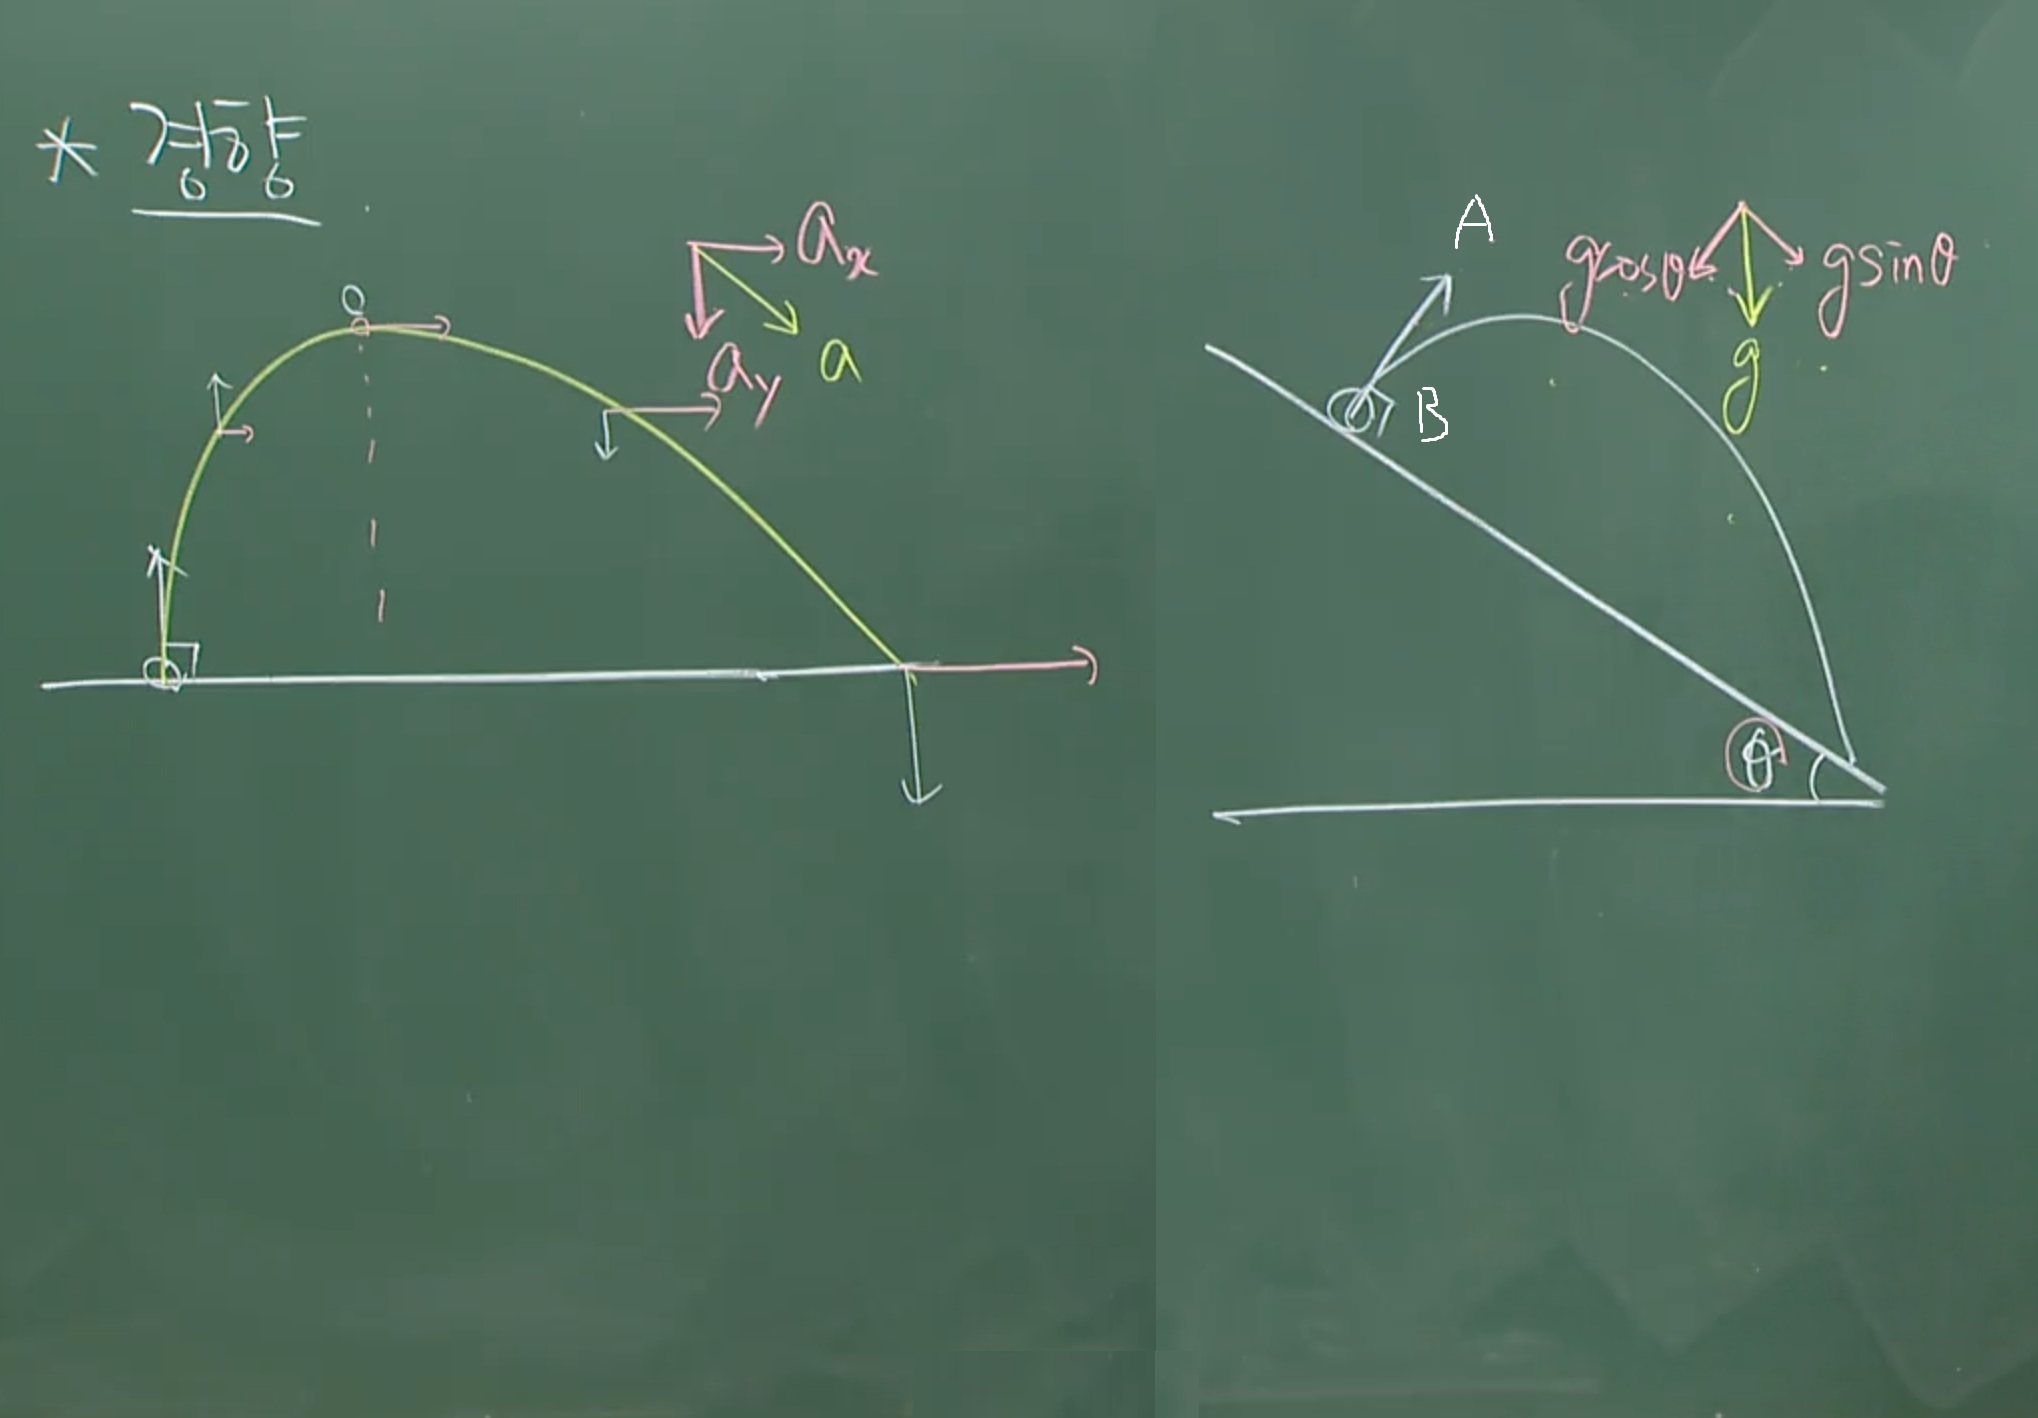 * 경향
0
aₓ
a_y
a
A
B
gcosθ
gsinθ
g
θ